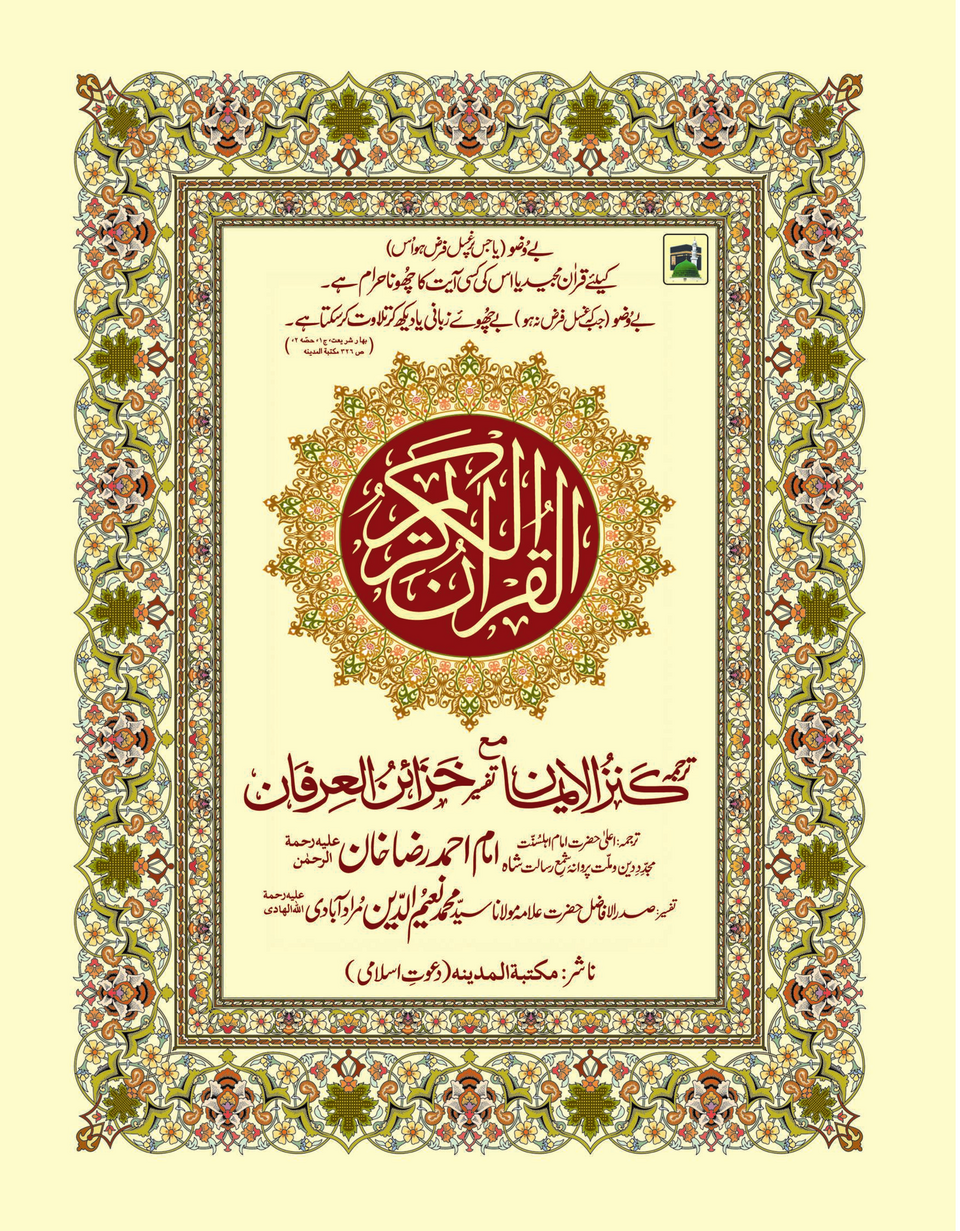 بے وُضو (یا جس پر غسل فرض ہو اُس)
کیلئے قراٰن مجید یا اس کی کسی آیت کا چُھونا حرام ہے۔
بے وُضو (جبکہ غسل فرض نہ ہو) بے چُھوئے زبانی یا دیکھ کر تلاوت کرسکتا ہے۔
(بہارِ شریعت، ج ۰۱ حصّہ ۰۲
ص ۳۲٦ مکتبۃ المدینہ)
القرآن الكريم
مع
ترجمہ کَنزُ الایمان تفسیر خَزائنُ العِرفَان
ترجمہ: اعلیٰ حضرت امام اہلسُنّت
مُجدِّدِ دین و ملّت پروانۂ شمعِ رسالت شاہ امام احمد رضا خان علیہ رحمۃ الرحمٰن
تفسیر: صدر الافاضل حضرت علامہ مولانا سیّد محمد نعیمُ الدّین مُراد آبادی علیہ رحمۃ اللہ الھادی
ناشر: مکتبۃ المدینہ (دعوتِ اسلامی)